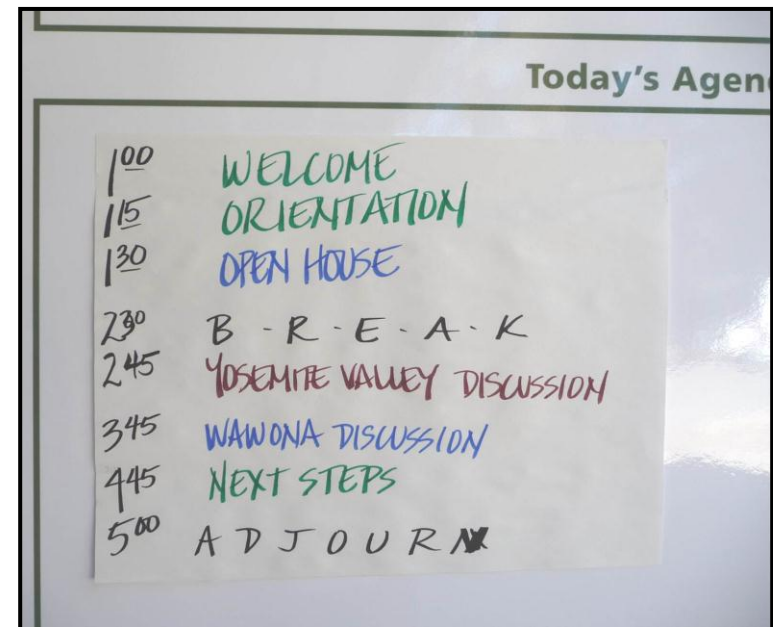 Today's Agen
1 00 WELCOME
1 15 ORIENTATION
1 30 OPEN HOUSE
2 30 B - R - E - A - K
2 45 YOSEMITE VALLEY DISCUSSION
3 45 WAWONA DISCUSSION
4 45 NEXT STEPS
5 00 A D J O U R N